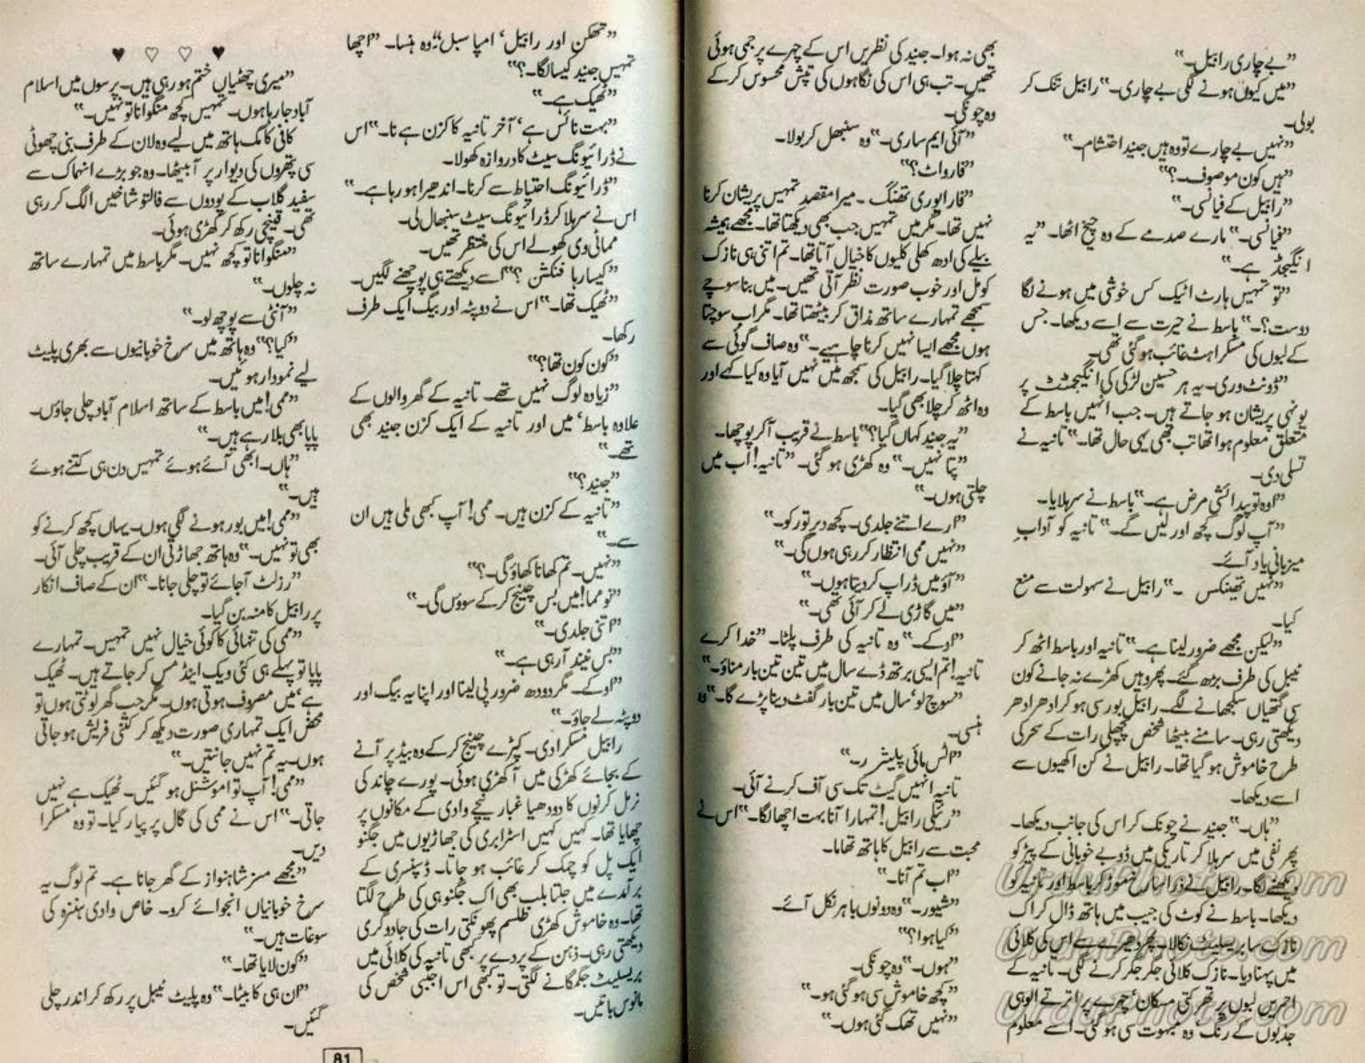 ”بے چاری رابیل۔“
”میں کیوں ہونے لگی بے چاری۔“ رابیل تنک کر
بولی۔
”نہیں بے چارے تو وہ ہیں جنید احتشام۔“
”ہیں کون موصوف۔؟“
”رابیل کے فیانسی۔“
”فیانسی۔“ مارے صدمے کے وہ چیخ اٹھا۔ ”یہ
انگیجڈ ہے۔“
”تو تمہیں ہارٹ اٹیک کس خوشی میں ہونے لگا
دوست؟۔“ باسط نے حیرت سے اسے دیکھا۔ جس
کے لبوں کی مسکراہٹ غائب ہو گئی تھی۔
”ڈونٹ وری۔ یہ ہر حسین لڑکی کی انگیجمنٹ پر
یونہی پریشان ہو جاتے ہیں۔ جب انہیں باسط کے
متعلق معلوم ہوا تھا تب بھی یہی حال تھا۔“ تانیہ نے
تسلی دی۔
”اوہ تو پیدائشی مرض ہے۔“ باسط نے سر ہلایا۔
”آپ لوگ کچھ اور لیں گے۔“ تانیہ کو آداب
میزبانی یاد آئے۔
”نہیں تھینکس ۔“ رابیل نے سہولت سے منع
کیا۔
”لیکن مجھے ضرور لینا ہے۔“ تانیہ اور باسط اٹھ کر
ٹیبل کی طرف بڑھ گئے۔ پھر وہیں کھڑے نہ جانے کون
سی گتھیاں سلجھانے لگے۔ رابیل بور سی ہو کر ادھر ادھر
دیکھتی رہی۔ سامنے بیٹھا شخص پچھلی رات کے سحر کی
طرح خاموش ہو گیا تھا۔ رابیل نے کن اکھیوں سے
اسے دیکھا۔
”ہاں۔“ جنید نے چونک کر اس کی جانب دیکھا۔
پھر نفی میں سر ہلا کر تاریکی میں ڈوبے خوبانی کے پیڑ کو
دیکھنے لگا۔ رابیل نے ذرا سا رخ موڑ کر باسط اور تانیہ کو
دیکھا۔ باسط نے کوٹ کی جیب میں ہاتھ ڈال کر اک
نازک سا بریسلیٹ نکالا۔ پھر دھیرے سے اس کی کلائی
میں پہنا دیا۔ نازک کلائی جگر جگر کرنے لگی۔ تانیہ کے
احمریں لبوں پر تھرکتی مسکان، چہرے پر اترتے الوہی
جذبوں کے رنگ وہ مبہوت سی ہو گئی۔ اسے معلوم
بھی نہ ہوا۔ جنید کی نظریں اس کے چہرے پر جمی ہوئی
تھیں۔ تب ہی اس کی نگاہوں کی تپش محسوس کر کے
وہ چونکی۔
”آئی ایم ساری۔“ وہ سنبھل کر بولا۔
”فار واٹ؟“
”فار ایوری تھنگ ۔ میرا مقصد تمہیں پریشان کرنا
نہیں تھا۔ مگر میں تمہیں جب بھی دیکھتا تھا۔ مجھے ہمیشہ
بیلے کی ادھ کھلی کلیوں کا خیال آتا تھا۔ تم اتنی ہی نازک
کومل اور خوب صورت نظر آتی تھیں۔ میں بنا سوچے
سمجھے تمہارے ساتھ مذاق کر بیٹھتا تھا۔ مگر اب سوچتا
ہوں مجھے ایسا نہیں کرنا چاہیے۔“ وہ صاف گوئی سے
کہتا چلا گیا۔ رابیل کی سمجھ میں نہیں آیا وہ کیا کہے اور
وہ اٹھ کر چلا بھی گیا۔
”یہ جنید کہاں گیا؟“ باسط نے قریب آ کر پوچھا۔
”پتا نہیں۔“ وہ کھڑی ہو گئی۔ ”تانیہ! اب میں
چلتی ہوں۔“
”ارے اتنے جلدی۔ کچھ دیر تو رکو۔“
”نہیں ممی انتظار کر رہی ہوں گی۔“
”آؤ میں ڈراپ کر دیتا ہوں۔“
”میں گاڑی لے کر آئی تھی۔“
”اوکے۔“ وہ تانیہ کی طرف پلٹا۔ ”خدا کرے
تانیہ! تم ایسی برتھ ڈے سال میں تین تین بار مناؤ۔“
”سوچ لو، سال میں تین بار گفٹ دینا پڑے گا۔“ وہ
ہنسی۔
”اٹس مائی پلیشر ۔“
تانیہ انہیں گیٹ تک سی آف کرنے آئی۔
”رئیلی رابیل! تمہارا آنا بہت اچھا لگا۔“ اس نے
محبت سے رابیل کا ہاتھ تھاما۔
”اب تم آنا۔“
”شیور۔“ وہ دونوں باہر نکل آئے۔
”کیا ہوا؟“
”ہوں۔“ وہ چونکی۔
”کچھ خاموش سی ہو گئی ہو۔“
”نہیں تھک گئی ہوں۔“
”تھکن اور رابیل، امپاسبل۔“ وہ ہنسا۔ ”اچھا
تمہیں جنید کیسا لگا۔؟“
”ٹھیک ہے۔“
”بہت نائس ہے، آخر تانیہ کا کزن ہے نا۔“ اس
نے ڈرائیونگ سیٹ کا دروازہ کھولا۔
”ڈرائیونگ احتیاط سے کرنا۔ اندھیرا ہو رہا ہے۔“
اس نے سر ہلا کر ڈرائیونگ سیٹ سنبھال لی۔
مما ٹی وی کھولے اس کی منتظر تھیں۔
”کیسا رہا فنکشن ؟“ اسے دیکھتے ہی پوچھنے لگیں۔
”ٹھیک تھا۔“ اس نے دوپٹہ اور بیگ ایک طرف
رکھا۔
”کون کون تھا؟“
”زیادہ لوگ نہیں تھے۔ تانیہ کے گھر والوں کے
علاوہ باسط، میں اور تانیہ کے ایک کزن جنید بھی
تھے۔“
”جنید؟“
”تانیہ کے کزن ہیں۔ ممی! آپ کبھی ملی ہیں ان
سے۔“
”نہیں۔ تم کھانا کھاؤ گی۔؟“
”نو مما! میں بس چینج کر کے سوؤں گی۔“
”اتنی جلدی۔“
”بس نیند آ رہی ہے۔“
”اوکے۔ مگر دودھ ضرور پی لینا اور اپنا یہ بیگ اور
دوپٹہ لے جاؤ۔“
رابیل مسکرا دی۔ کپڑے چینج کر کے وہ بیڈ پر آنے
کے بجائے کھڑکی میں آ کھڑی ہوئی۔ پورے چاند کی
نرمل کرنوں کا دودھیا غبار نیچے وادی کے مکانوں پر
چھایا تھا۔ کہیں کہیں اسٹرابری کی جھاڑیوں میں جگنو
ایک پل کو چمک کر غائب ہو جاتا۔ ڈسپنسری کے
برآمدے میں جلتا بلب بھی اک جگنو ہی کی طرح لگتا
تھا۔ وہ خاموش کھڑی طلسم پھونکتی رات کی جادوگری
دیکھتی رہی۔ ذہن کے پردے پر کبھی تانیہ کی کلائی میں
بریسلیٹ جگمگانے لگتی۔ تو کبھی اس اجنبی شخص کی
مانوس باتیں۔
♥ ♡ ♡ ♥
”میری چھٹیاں ختم ہو رہی ہیں۔ پرسوں میں اسلام
آباد جا رہا ہوں۔ تمہیں کچھ منگوانا تو نہیں۔“
کافی کا مگ ہاتھ میں لیے وہ لان کے طرف بنی چھوٹی
سی پتھروں کی دیوار پر آ بیٹھا۔ وہ جو بڑے انہماک سے
سفید گلاب کے پودوں سے فالتو شاخیں الگ کر رہی
تھی۔ قینچی رکھ کر کھڑی ہوئی۔
”منگوانا تو کچھ نہیں۔ مگر باسط میں تمہارے ساتھ
نہ چلوں۔“
”آنٹی سے پوچھ لو۔“
”کیا؟“ وہ ہاتھ میں سرخ خوبانیوں سے بھری پلیٹ
لیے نمودار ہوئیں۔
”ممی! میں باسط کے ساتھ اسلام آباد چلی جاؤں۔
پاپا بھی بلا رہے ہیں۔“
”ہاں۔ ابھی آئے ہوئے تمہیں دن ہی کتنے ہوئے
ہیں۔“
”ممی! میں بور ہونے لگی ہوں۔ یہاں کچھ کرنے کو
بھی تو نہیں۔“ وہ ہاتھ جھاڑتی ان کے قریب چلی آئی۔
”رزلٹ آ جائے تو چلی جانا۔“ ان کے صاف انکار
پر رابیل کا منہ بن گیا۔
”ممی کی تنہائی کا کوئی خیال نہیں تمہیں۔ تمہارے
پاپا تو پہلے ہی کئی ویک اینڈ مس کر جاتے ہیں۔ ٹھیک
ہے، میں مصروف ہوتی ہوں۔ مگر جب گھر لوٹتی ہوں تو
محض ایک تمہاری صورت دیکھ کر کتنی فریش ہو جاتی
ہوں۔ یہ تم نہیں جانتیں۔“
”ممی! آپ تو اموشنل ہو گئیں۔ ٹھیک ہے نہیں
جاتی۔“ اس نے ممی کی گال پر پیار کیا۔ تو وہ مسکرا
دیں۔
”مجھے مسز شاہنواز کے گھر جانا ہے۔ تم لوگ یہ
سرخ خوبانیاں انجوائے کرو۔ خاص وادی ہنزہ کی
سوغات ہیں۔“
”کون لایا تھا۔“
”ان ہی کا بیٹا۔“ وہ پلیٹ ٹیبل پر رکھ کر اندر چلی
گئیں۔
81
UrduPhoto.com
UrduPhoto.com
UrduPhoto.com